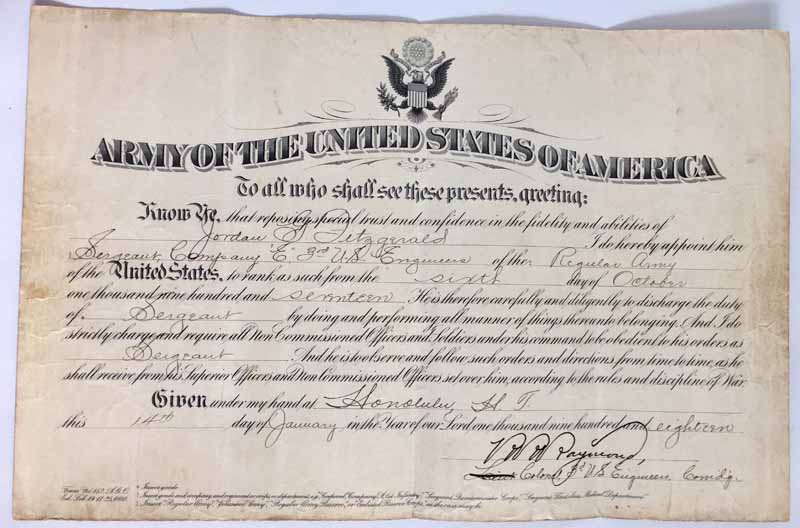 ARMY OF THE UNITED STATES OF AMERICA
To all who shall see these presents, greeting:
Know Ye, that reposing special trust and confidence in the fidelity and abilities of
Jordan Fitzgerald I do hereby appoint him
Sergeant, Company "E", 3rd U.S. Engineers of the Regular Army
of the United States, to rank as such from the sixth day of October
one thousand nine hundred and seventeen. He is therefore carefully and diligently to discharge the duty
of Sergeant by doing and performing all manner of things thereunto belonging. And I do
strictly charge and require all Non Commissioned Officers and Soldiers under his command to be obedient to his orders as
Sergeant. And he is to observe and follow such orders and directions from time to time, as he
shall receive from his Superior Officers and Non Commissioned Officers set over him, according to the rules and discipline of War.
Given under my hand at Honolulu, H.T.
this 14th day of January in the Year of our Lord one thousand nine hundred and eighteen
Raymond,
Colonel, 3d U S Engineers, Comdg.
Form No. A.G.O.
* Insert grade.